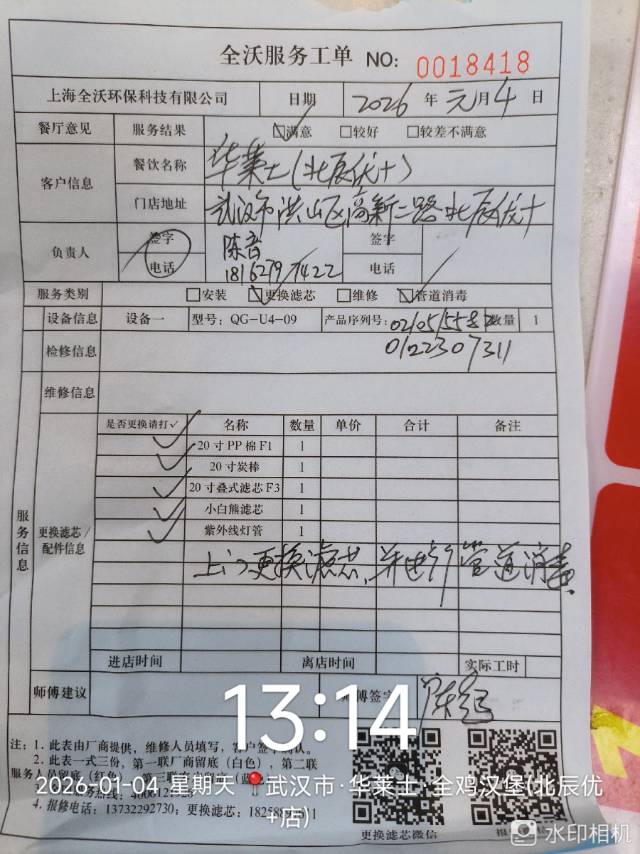 全沃服务工单 NO: 0018418
上海全沃环保科技有限公司 日期 2026 年 元 月 4 日
餐厅意见 服务结果 ☑满意 □较好 □较差不满意
客户信息 餐饮名称 华莱士(北辰优十)
门店地址 武汉市洪山区高新二路北辰优十
负责人 签字 陈音 签字
电话 电话
服务类别 □安装 ☑更换滤芯 □维修 ☑管道消毒
设备信息 设备一 型号: QG-U4-09 产品序列号: 数量 1
0122307311
检修信息
维修信息
服务信息
更换滤芯/配件信息
是否更换请打✓ 名称 数量 单价 合计 备注
✓ 20寸PP棉F1 1
✓ 20寸炭棒 1
✓ 20寸叠式滤芯F3 1
✓ 小白熊滤芯 1
✓ 紫外线灯管 1
上门更换滤芯,并进行管道消毒
进店时间 离店时间 实际工时
师傅建议 签字
13:14
注: 1. 此表由厂商提供, 维修人员填写, 客户签字确认。
2. 此表一式三份, 第一联厂商留底(白色), 第二联
服务人员留底(红色)
2026-01-04 星期天 武汉市·华莱士·全鸡汉堡(北辰优
+店)
4. 报修电话: 13732292730; 更换滤芯:
更换滤芯微信
水印相机